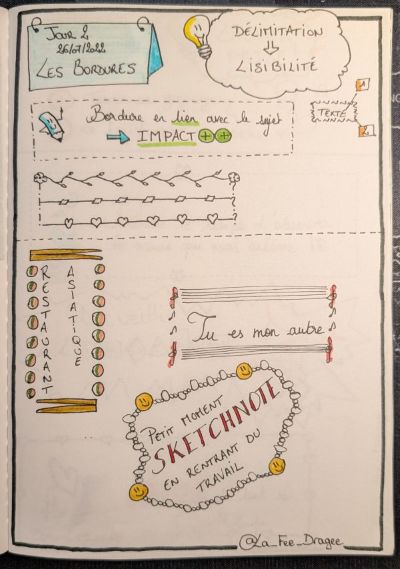 JOUR 2
26/07/2022
LES BORDURES
DÉLIMITATION
LISIBILITÉ
Bordure en lien avec le sujet
IMPACT
TEXTE
RESTAURANT
ASIATIQUE
Tu es mon autre
PETIT MOMENT
SKETCHNOTE
EN RENTRANT DU
TRAVAIL
@La_Fee_Dragee_